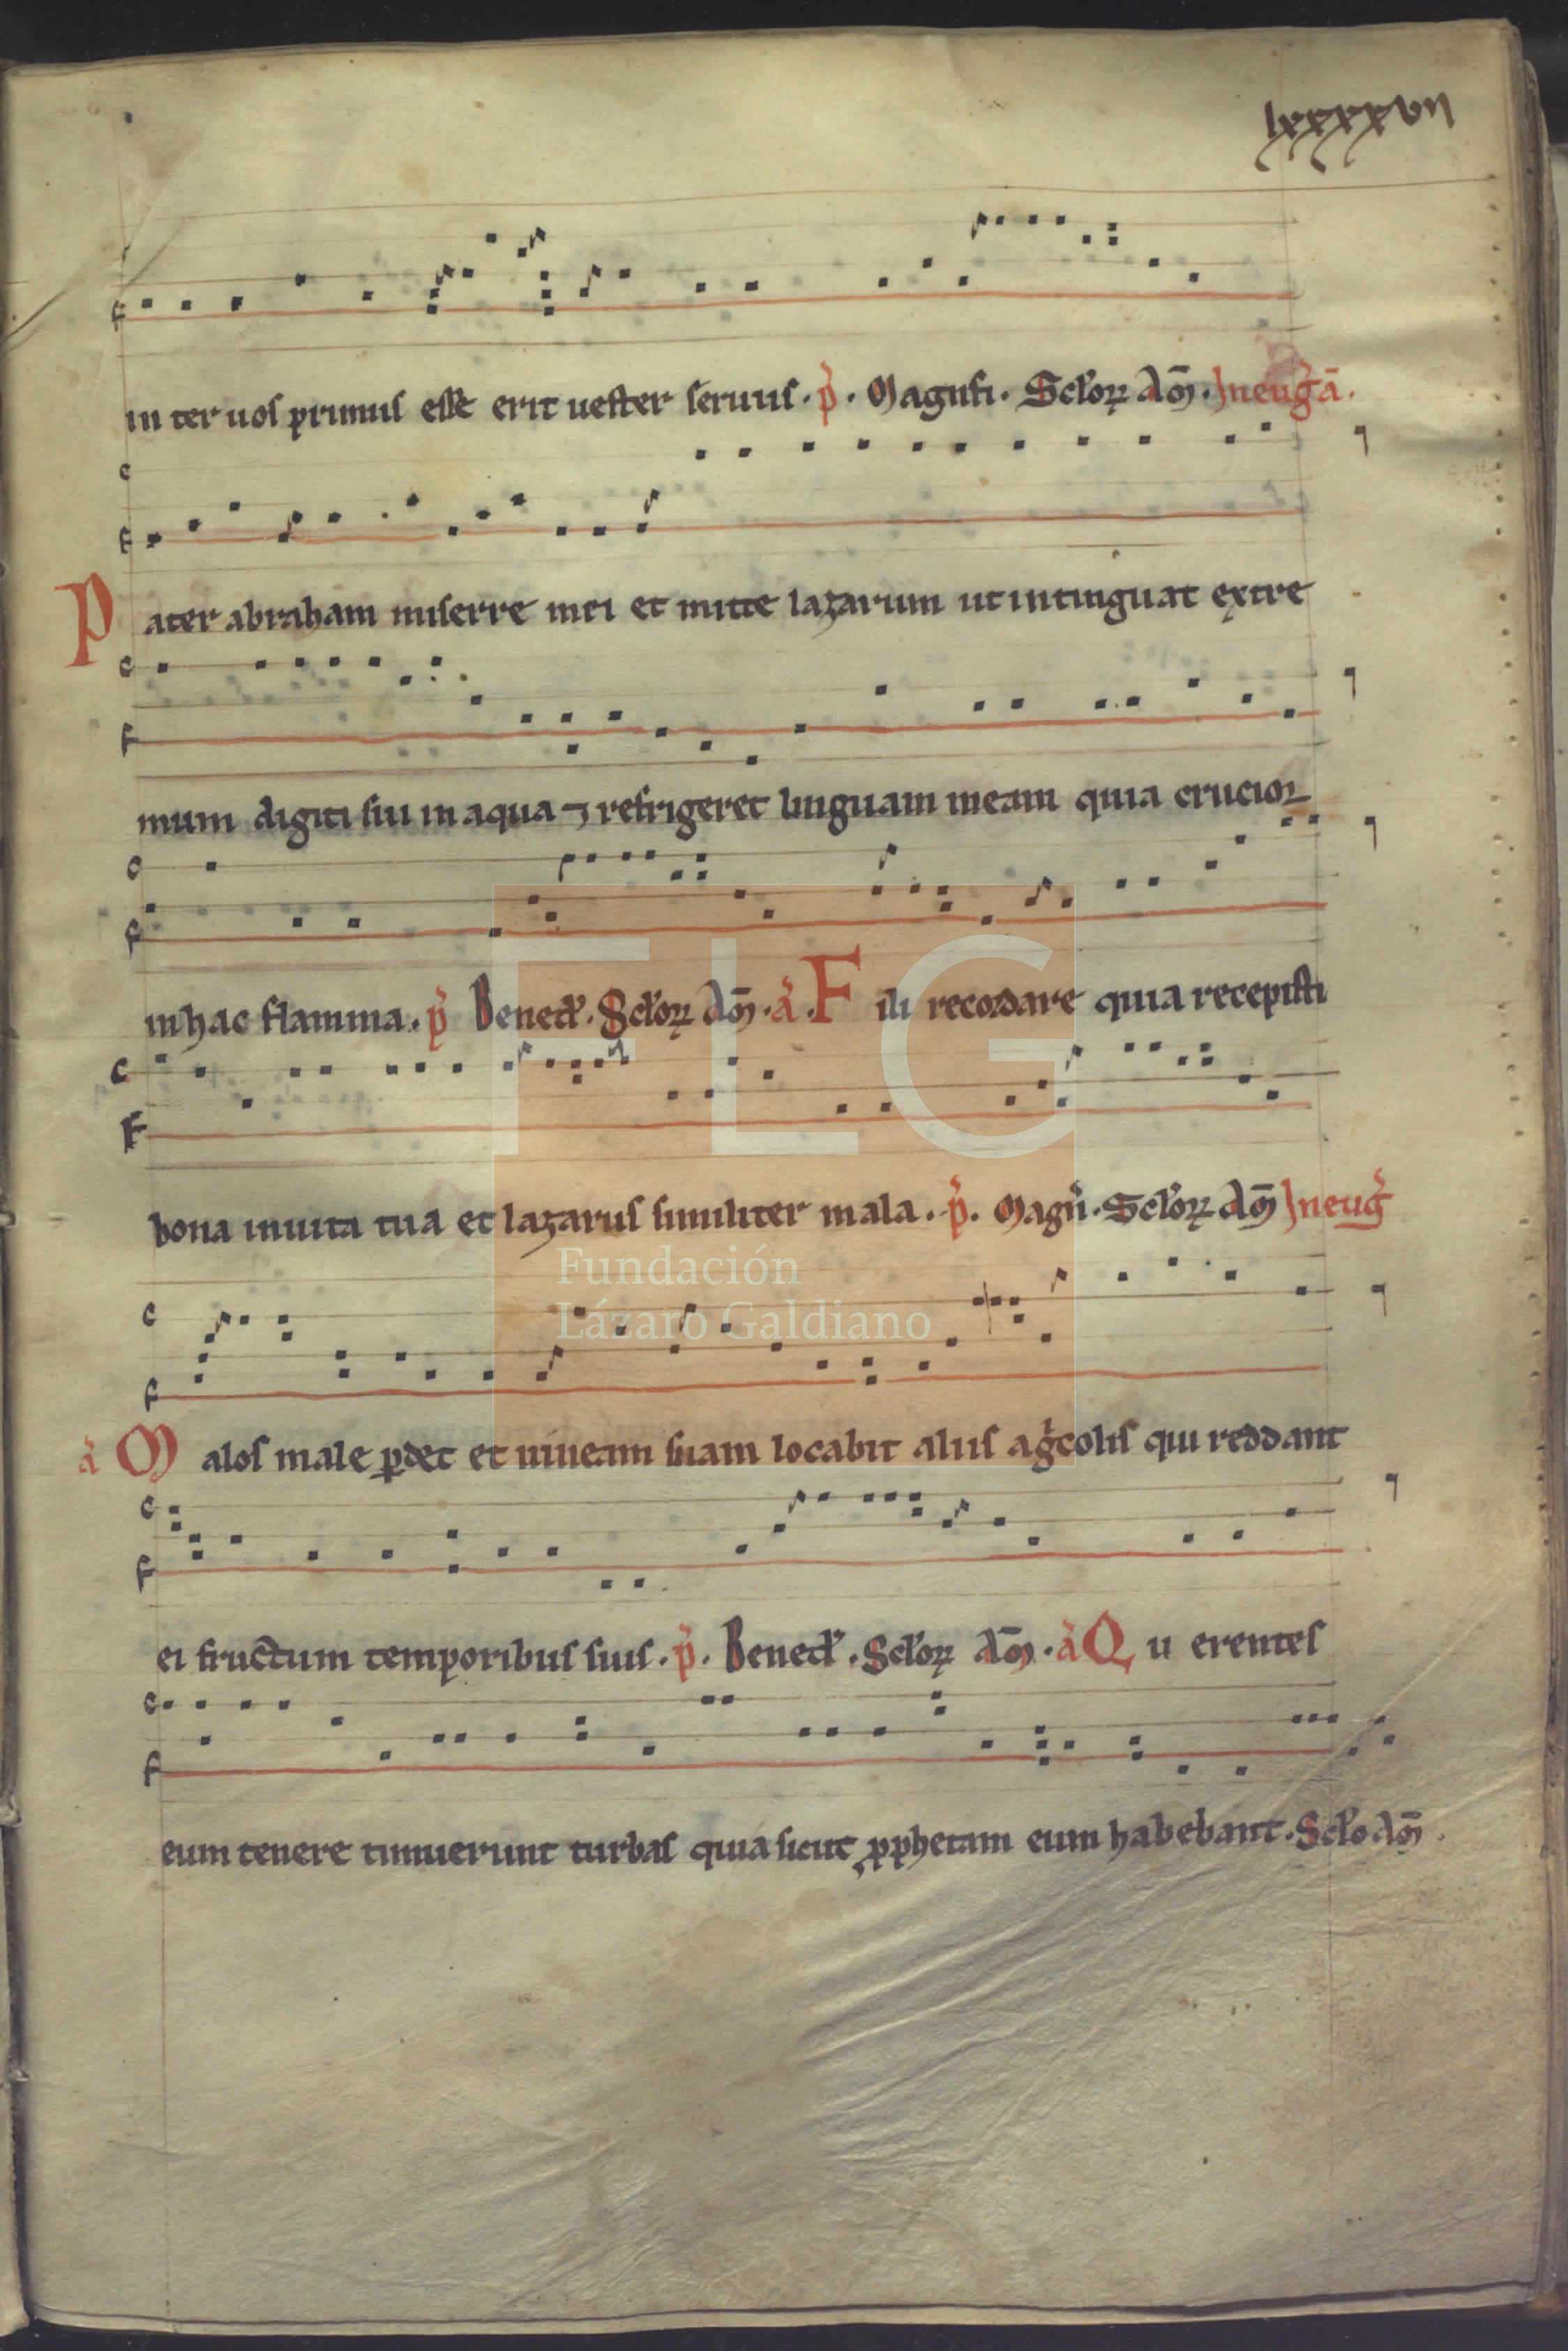 lxxxxvii
in ter uos primus esse erit uester seruus. p̉. Magnifi. Sclo᷒ꝝ Am̄. In eug̉ā.
P ater abraham miserre mei et mitte lazarum ut intinguat extre
mum digiti sui in aqua ⁊ refrigeret linguam meam quia crucior
in hac flamma. p̉ Bened̉. Sclo᷒ꝝ Am̄. a̓. F ili recordare quia recepisti
bona in uita tua et lazarus similiter mala. p̉. Magn̉. Sclo᷒ꝝ Am̄ In eug̉
a̓ M alos male ꝑdet et uineam suam locabit aliis ag̉colis qui reddant
ei fructum temporibus suis. p̉. Bened̉. Sclo᷒ꝝ Am̄. a̓ Q u erentes
eum tenere timuerunt turbas quia sicut ꝓphetam eum habebant. Sclo᷒ Am̄.
FLG
Fundación
Lázaro Galdiano